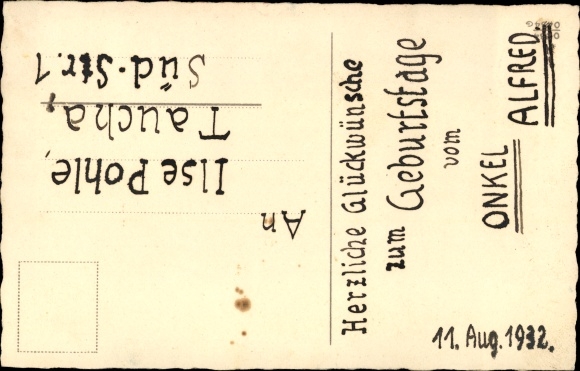 Herzliche Glückwünsche
zum Geburtstage
vom
ONKEL
ALFRED.
11. Aug. 1932.
An
Ilse Pohle,
Taucha,
Süd-Str. 1